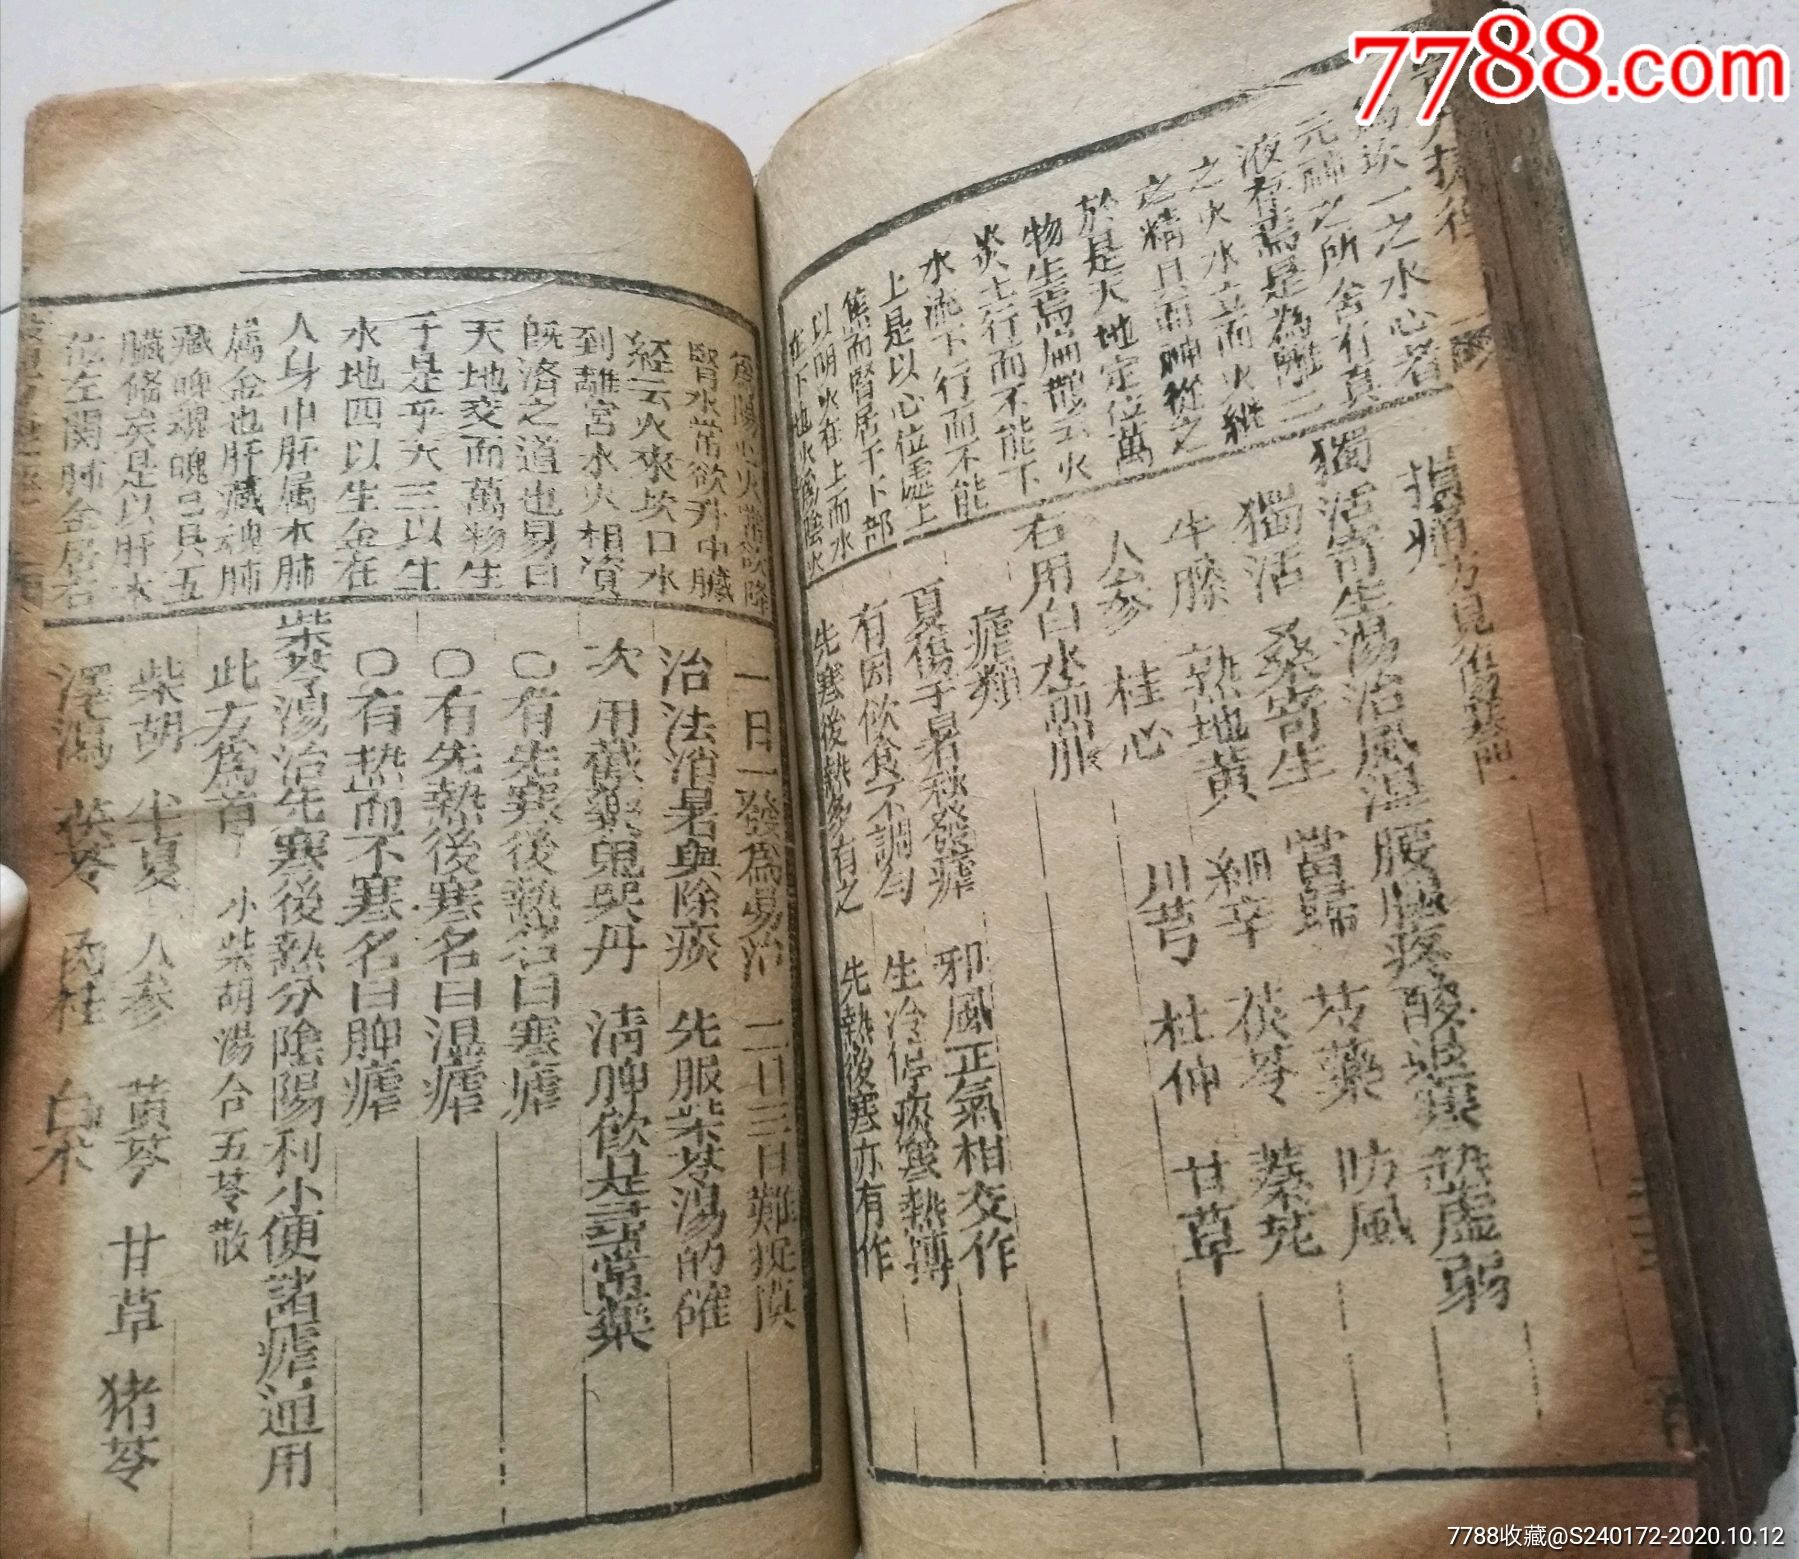 7788.com
為坎一之水心者
元神之所舍有真
液存焉是為離二
之火水立而火繼
之精具而神從之
於是天地定位萬
物生焉
炎上行而不能下
水流下行而不能
上是以心位處上
焦而腎居于下部
以明火在上而水
在下地水為陰火
損痛方見傷寒門
獨活寄生湯治風濕腰腿疼酸
虛弱
獨活 桑寄生 當歸 芍藥 防風
牛膝 熟地黃 細辛 茯苓 蓁艽
人參 桂心 川芎 杜仲 甘草
右用白水煎服
瘧類
夏傷于暑秋發瘧 邪風正氣相交作
有因飲食不調勻 生冷停痰寒熱摶
先寒後熱多有之 先熱後寒亦有作
為陽心火常欲降
腎水常欲升中臟
経云火來坎口水
到離宮水火相資
旣済之道也易曰
天地交而萬物生
于是乎天三以生
水地四以生金在
人身中肝属木肺
属金也肝藏魂肺
藏魄魂魄已具五
臟備矣是以肝木
位左関肺金居右
一日一發為易治 二日三日難捉摸
治法消暑與除痰 先服柴苓湯的確
次用截藥鬼哭丹 清脾飲是尋常藥
〇有先寒後熱名曰寒瘧
〇有先熱後寒名曰温瘧
〇有熱而不寒名曰脾瘧
柴苓湯治先寒後熱分陰陽利小便諸瘧通用
此方為首 小柴胡湯合五苓散
柴胡 半夏 人參 黃芩 甘草 猪苓
澤瀉 茯苓 肉桂 白朮
7788收藏@S240172-2020.10.12